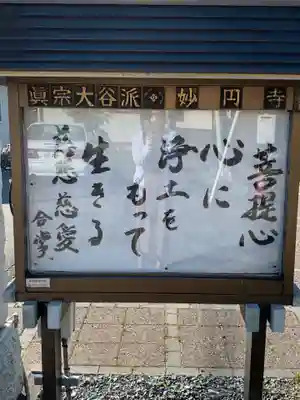 眞宗大谷派 妙円寺
菩提心
心に
浄土を
もって
生きる
慈慈愛
合掌